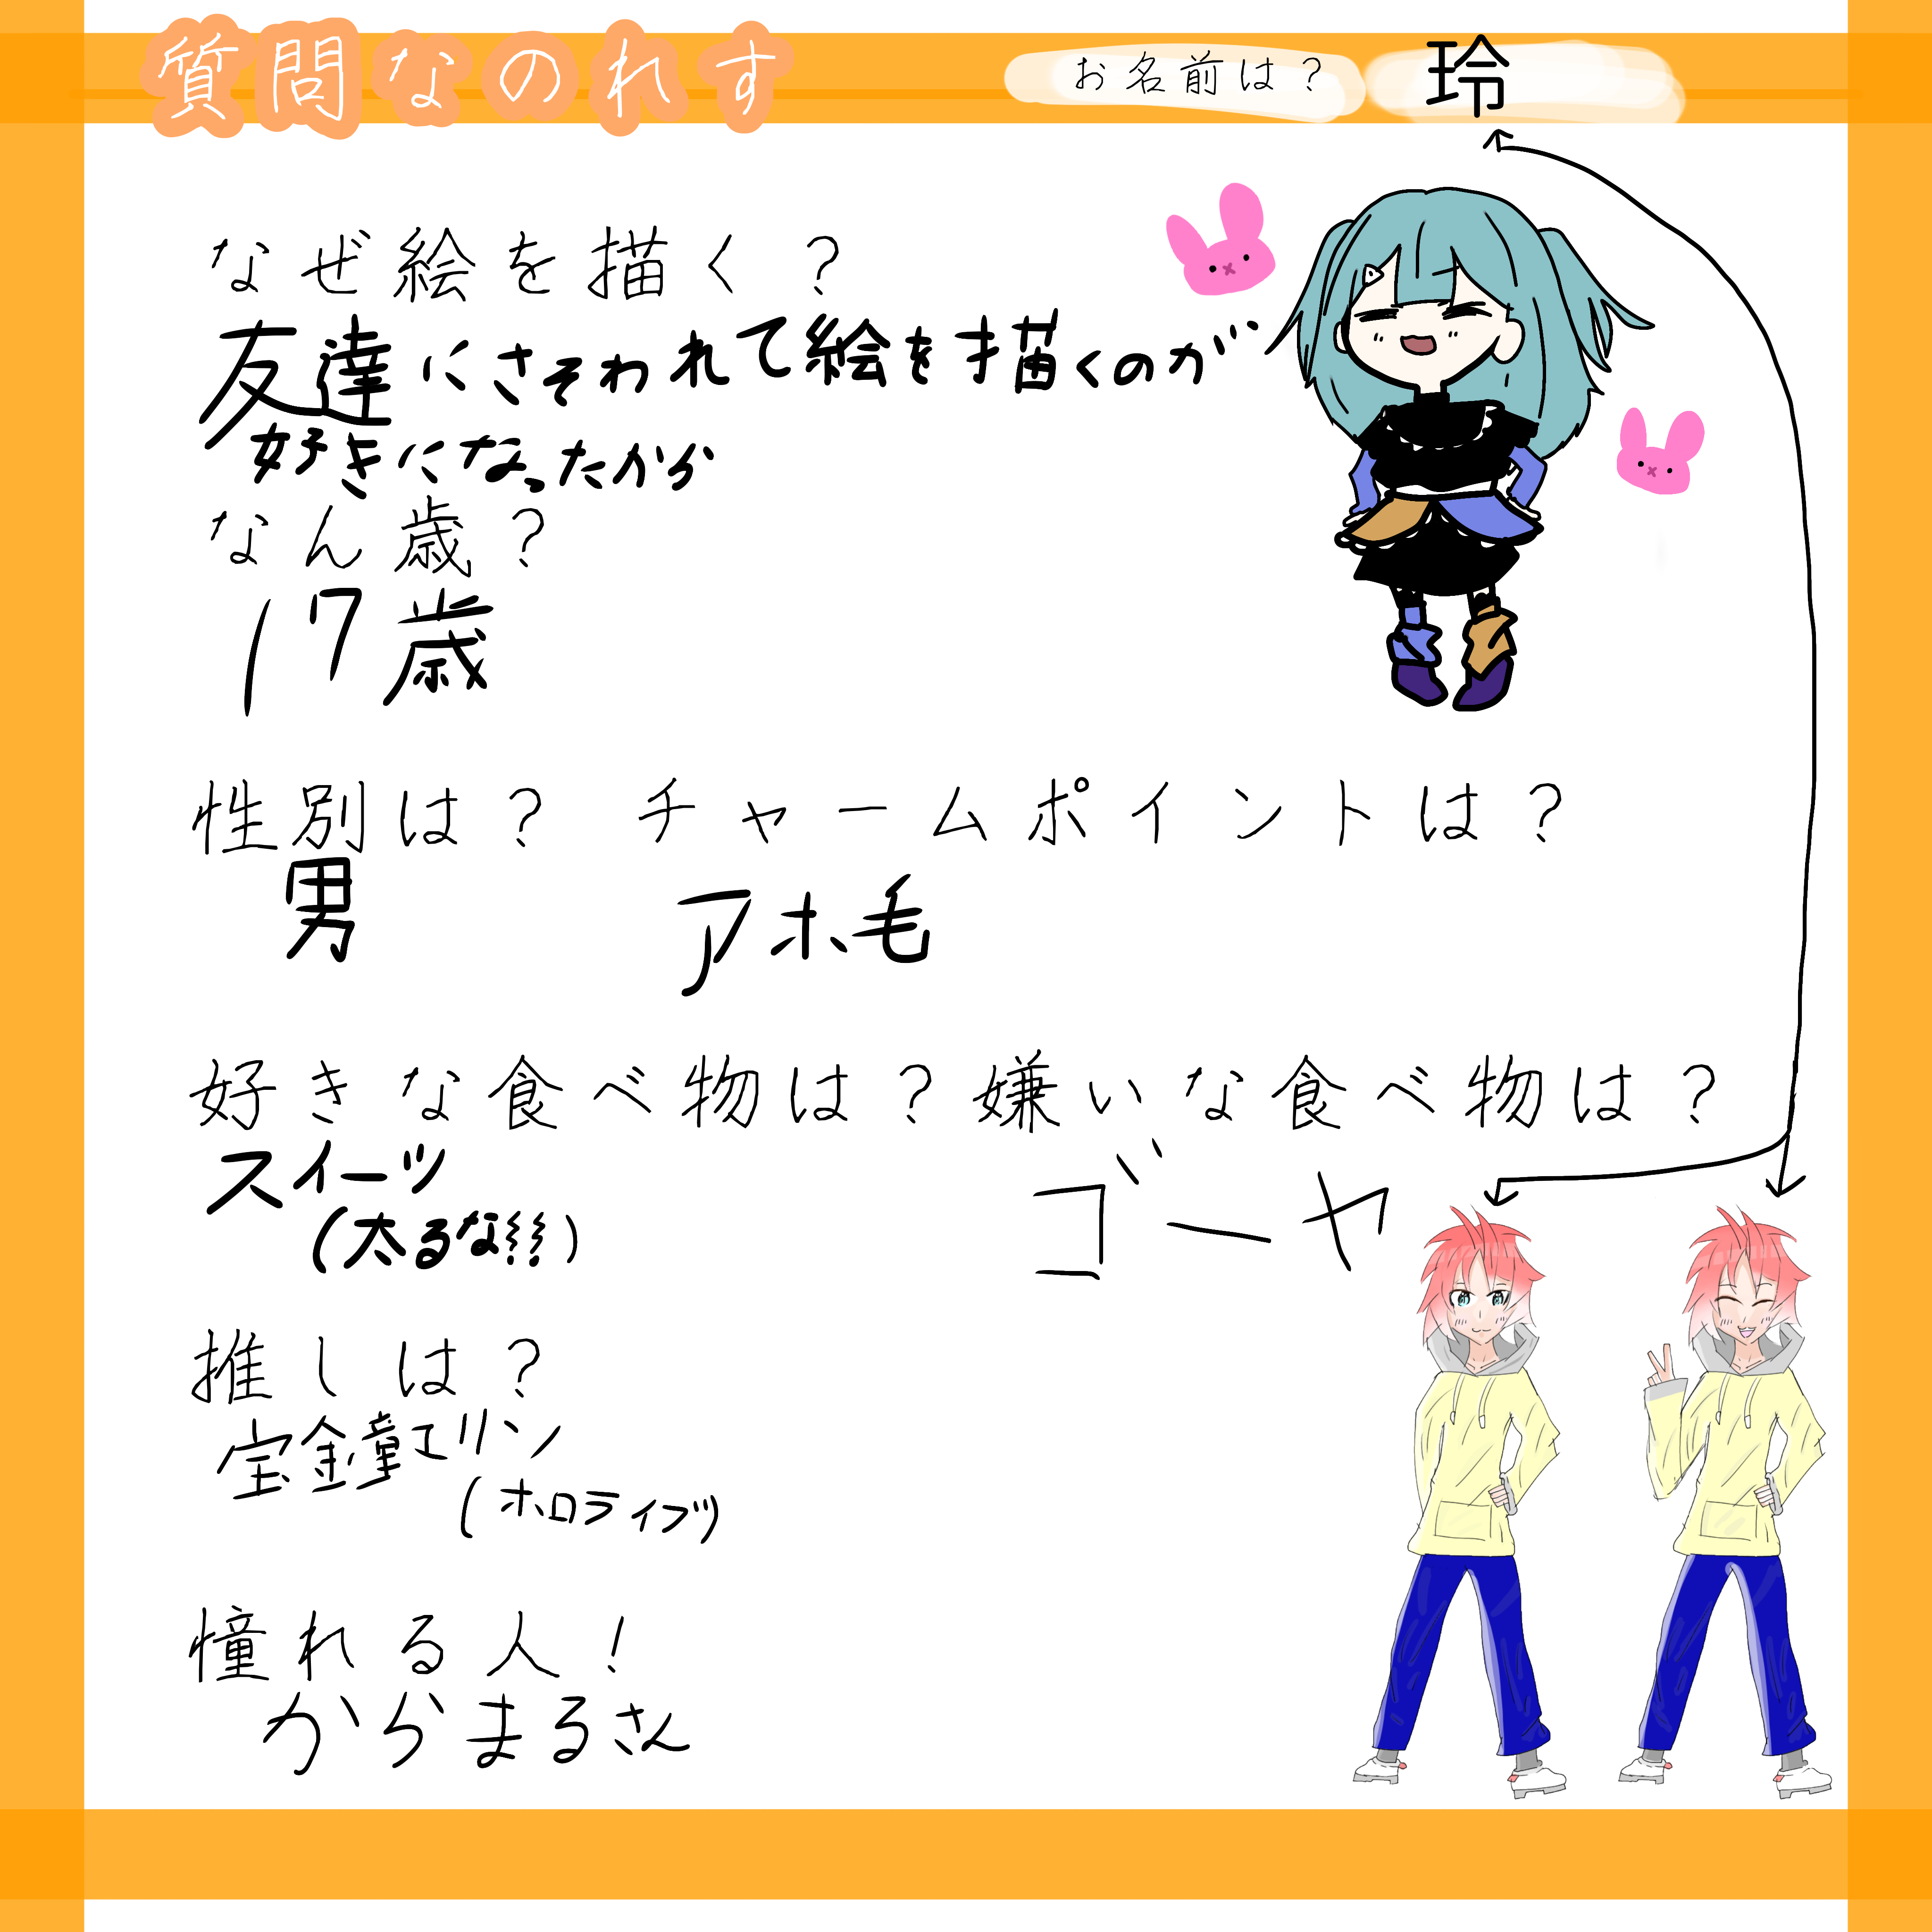 質問なのれす
お名前は？ 玲
なぜ絵を描く？
友達にさそわれて絵を描くのが
好きになったから
なん歳？
17歳
性別は？ チャームポイントは？
男 アホ毛
好きな食べ物は？嫌いな食べ物は？
スイーツ ゴーヤ
(太るな!!)
推しは？
宝鐘エリン
(ホロライブ)
憧れる人！
からまるさん